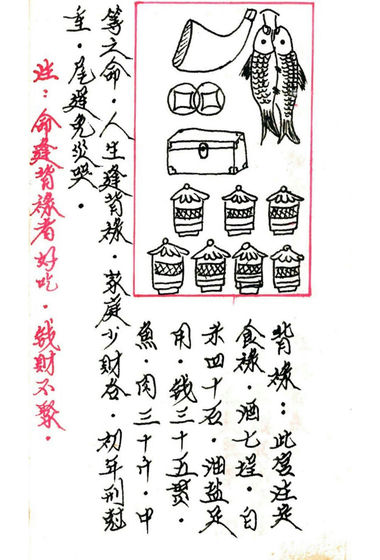 背禄：此宫注定
食禄．酒七埕．白
米四十石．油盐足
用．钱三十五贯．
魚．肉三十斤．中
等之命．人生逢背禄．家庭少财谷．初年刑尅
重．尾逢免災哭．
注：命逢背禄者好吃．钱财不聚．